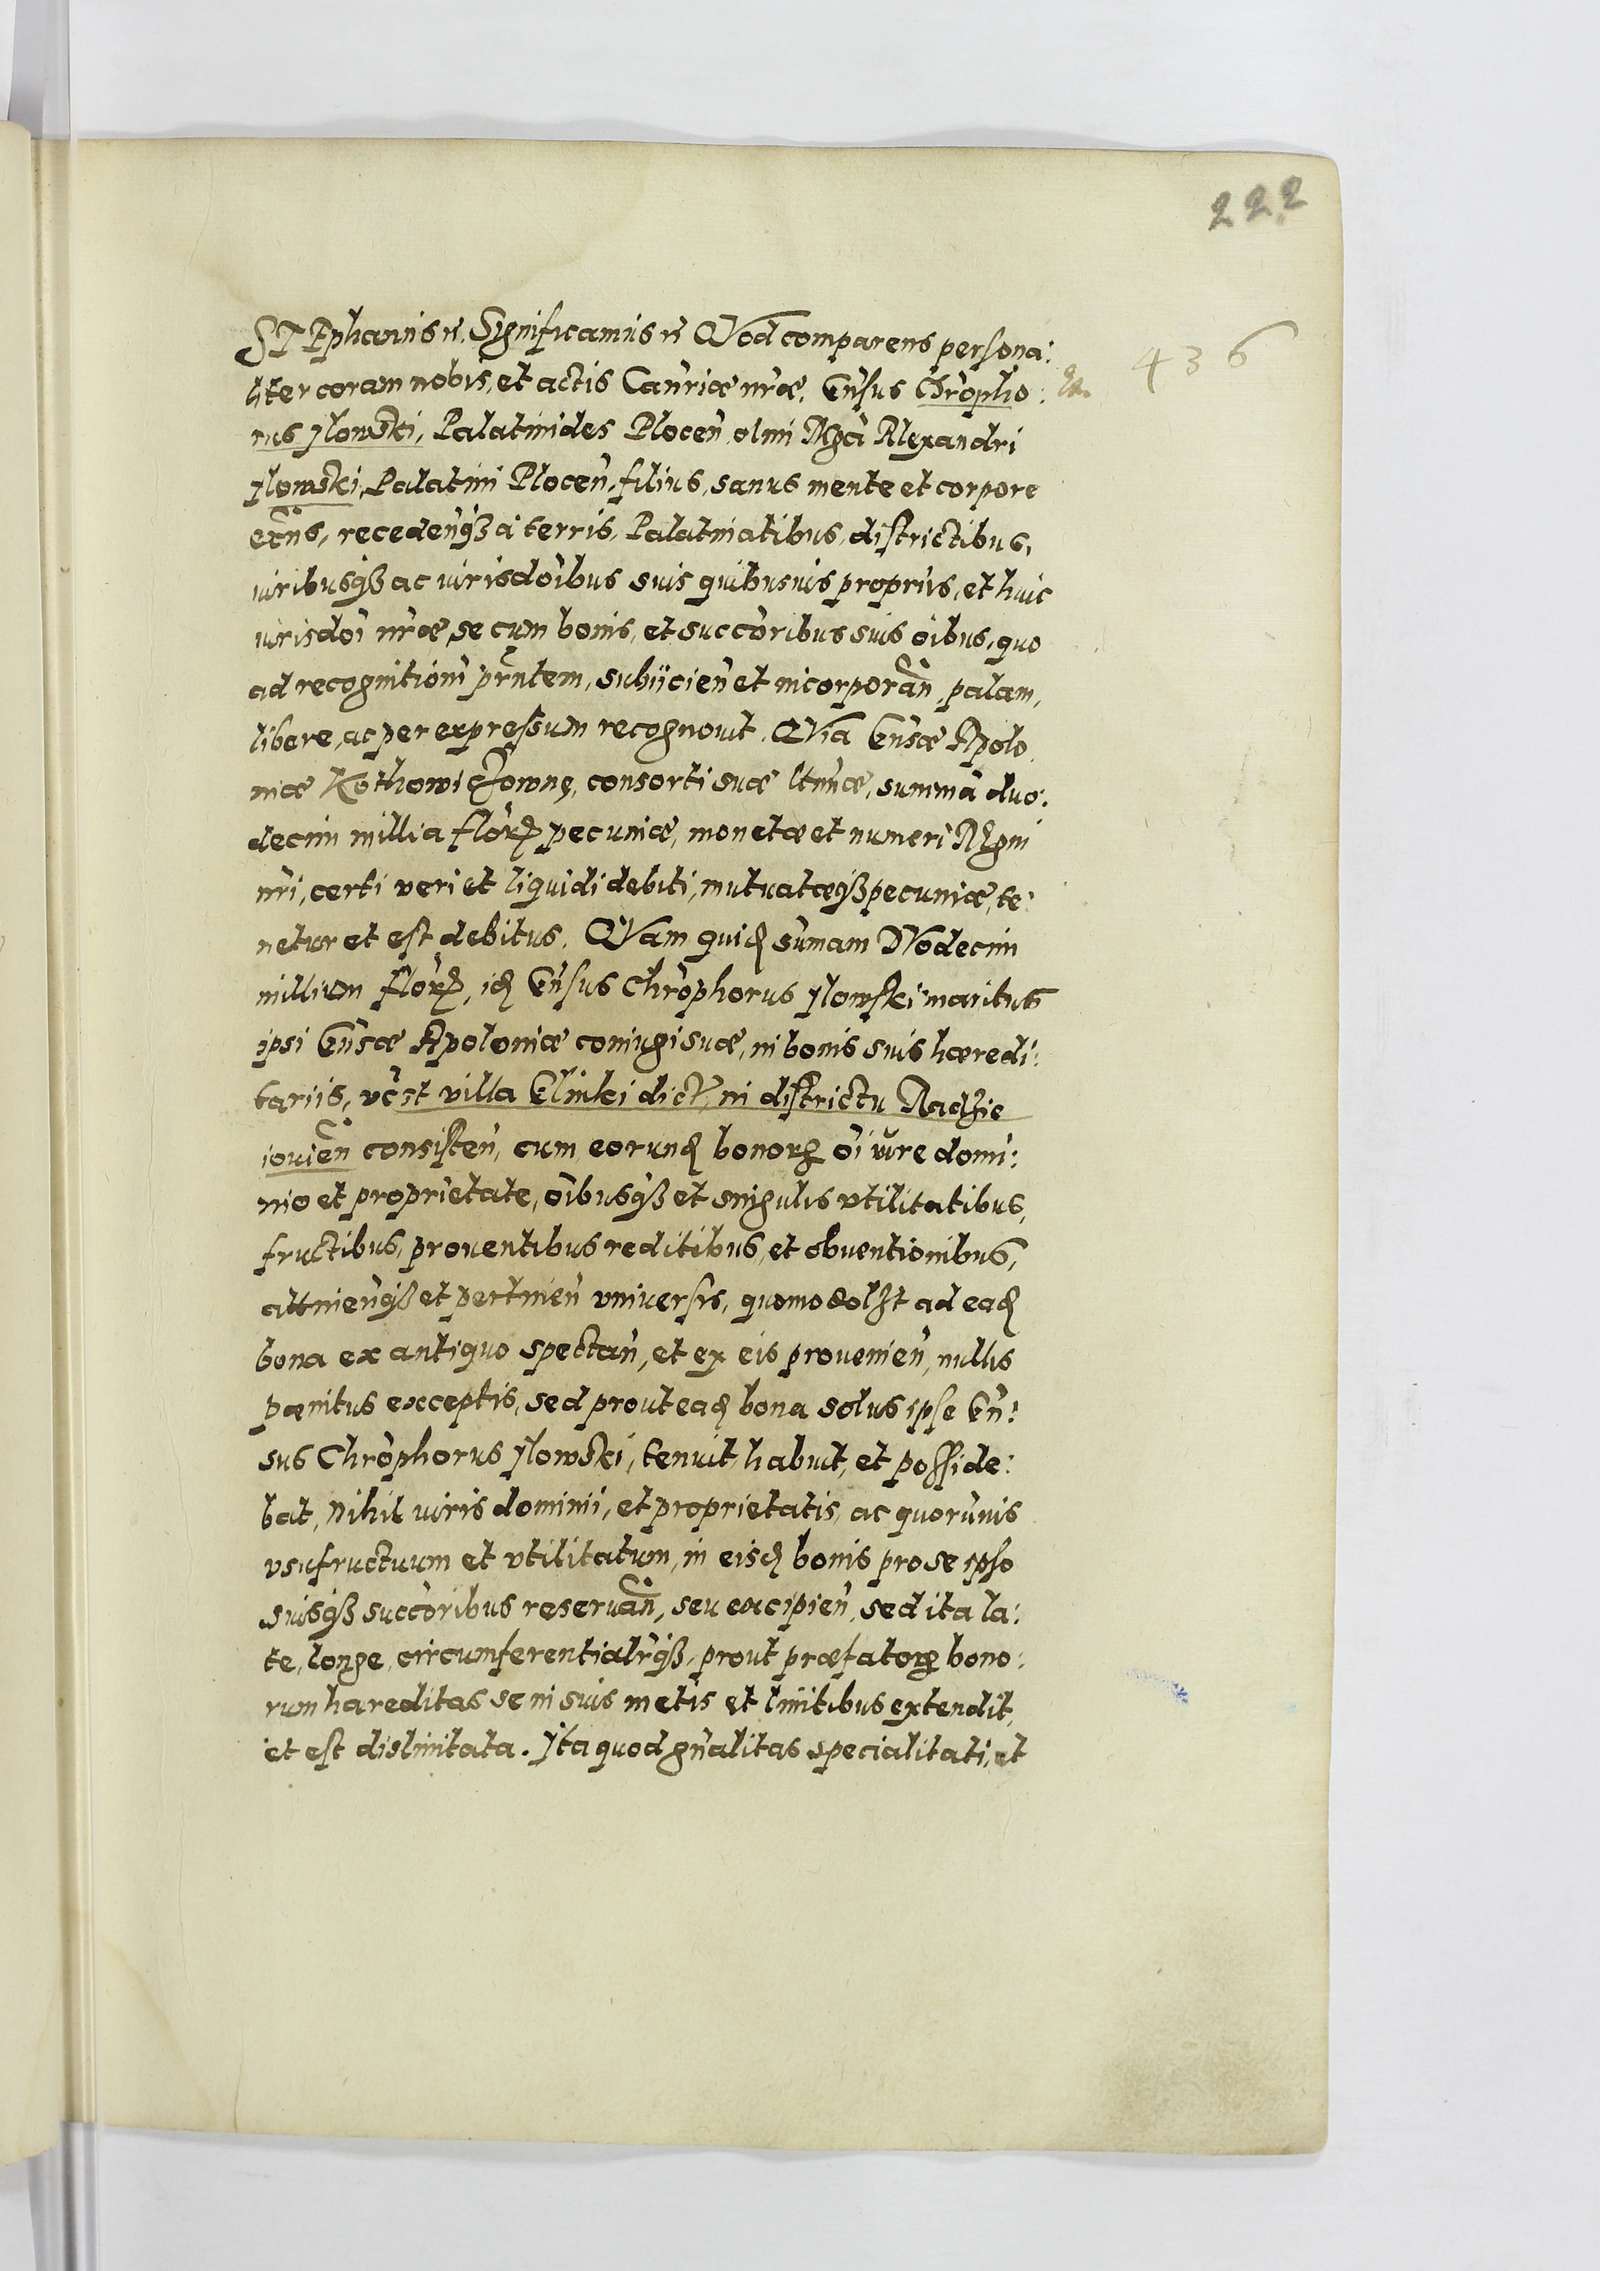 222
436
STEphanus rc. Significamus rc Quod comparens persona:
liter coram nobis, et actis Canriæ nræ, Gnsus Chropho:
rus Jlowski, Palatinides Plocen, olim Mgci Alexandri
Jlowski, Palatini Plocen, filius, sanus mente et corpore
exns, recedenqz à terris, Palatinatibus, districtibus,
iuribusqz ac iurisdoibus suis quibusuis proprijs, et huic
iurisdoi nræ, se cum bonis, et succoribus suis oibus, quo
ad recognitioni prntem, subijcien et incorporan, palam,
libere, ac per expressum recognouit. Quia Gnsæ Apolo
niæ Kothowiczowny, consorti suæ ltmæ, summa duo:
decim millia florz pecuniæ, monetæ et numeri Regni
nri, certi veri et liquidi debiti, mutuatæqz pecuniæ, te:
netur et est debitus. Quam quid sumam Duodecim
millium florz, id Gnsus Chrophorus Jlowski maritus
ipsi Gnsæ Apoloniæ coniugi suæ, in bonis suis hæredi:
tariis, vcst villa Glinki dict, in districtu Radzie
iouien consisten, cum eorund bonorz oi iure domi:
nio et proprietate, oibusqz et singulis vtilitatibus,
fructibus, prouentibus reditibus, et obuentionibus,
attinenqz et pertinen vniuersis, quomodolzt ad ead
bona ex antiquo spectan, et ex eis prouenien, nullis
pænitus exceptis, sed prout ead bona solus ipse Gn:
sus Chrophorus Jlowski, tenuit, habuit, et posside:
bat, Nihil iuris dominij, et proprietatis, ac quorumuis
vsufructuum et vtilitatum, in eisd bonis pro se ipso
suisqz succoribus reseruan, seu excipien, sed ita la:
te, longe, circumferentialrqz, prout præfatorz bono:
rum hæreditas se in suis metis et limitibus extendit,
et est dislimitata. Jta quod gnalitas specialitati, et